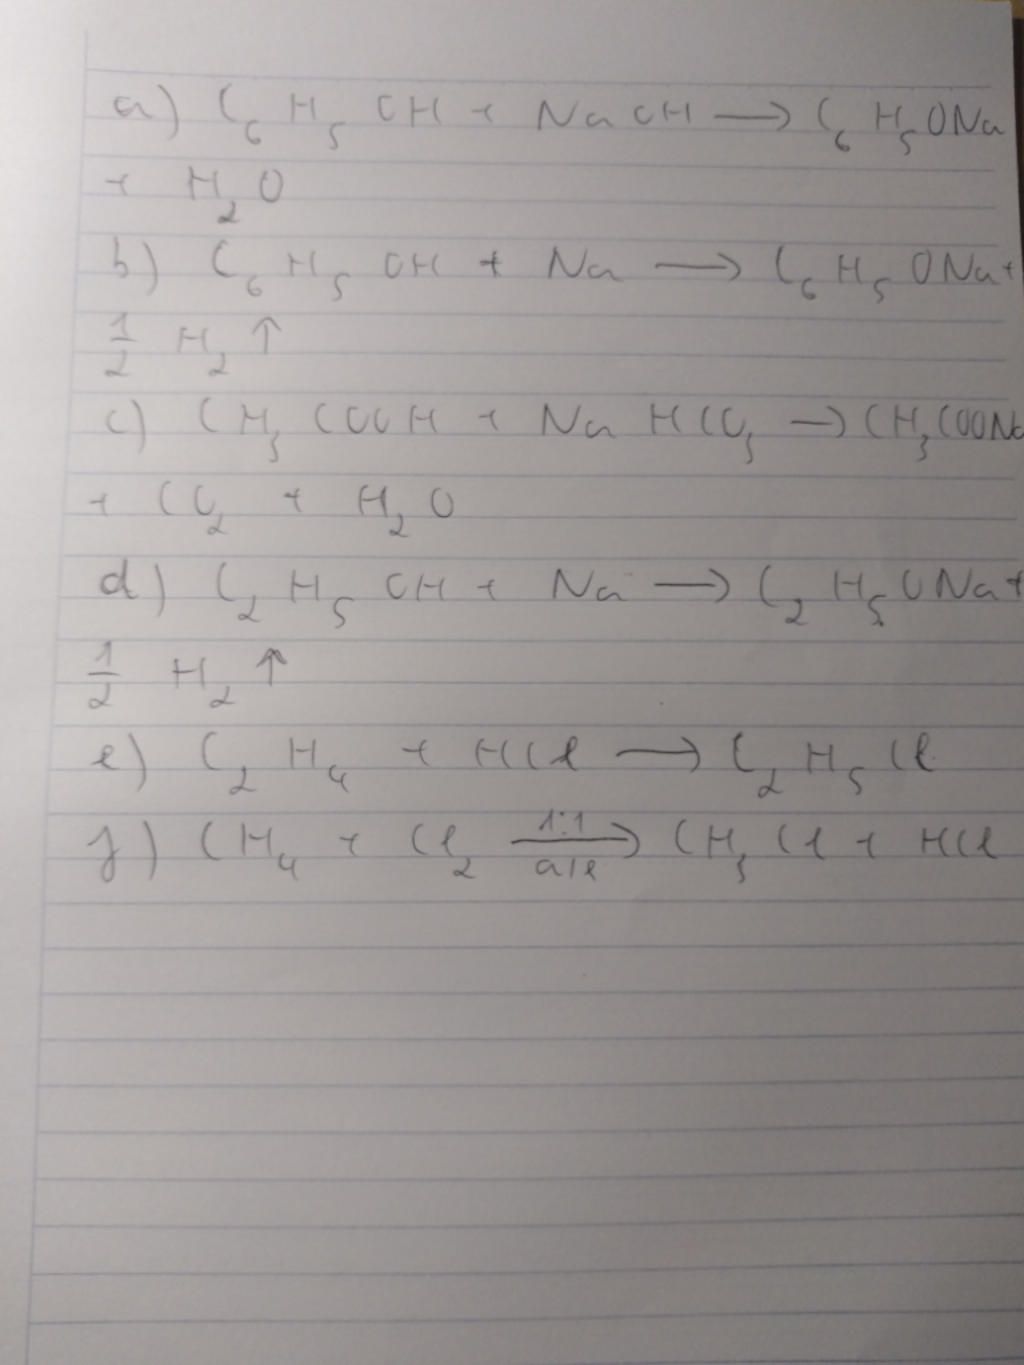 a) C₆H₅OH + NaOH → C₆H₅ONa
+ H₂O
b) C₆H₅OH + Na → C₆H₅ONa +
1/2 H₂ ↑
c) CH₃COOH + NaHCO₃ → CH₃COONa
+ CO₂ + H₂O
d) C₂H₅OH + Na → C₂H₅ONa +
1/2 H₂ ↑
e) C₂H₄ + HCl → C₂H₅Cl
1:1
f) CH₄ + Cl₂ → CH₃Cl + HCl